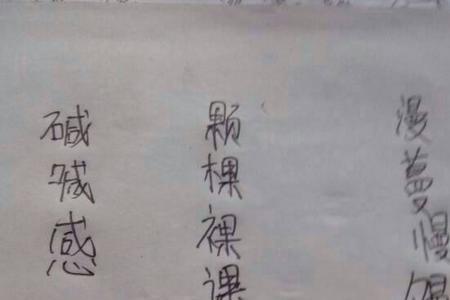 碱喊感
颗棵裸课
漫蔓慢